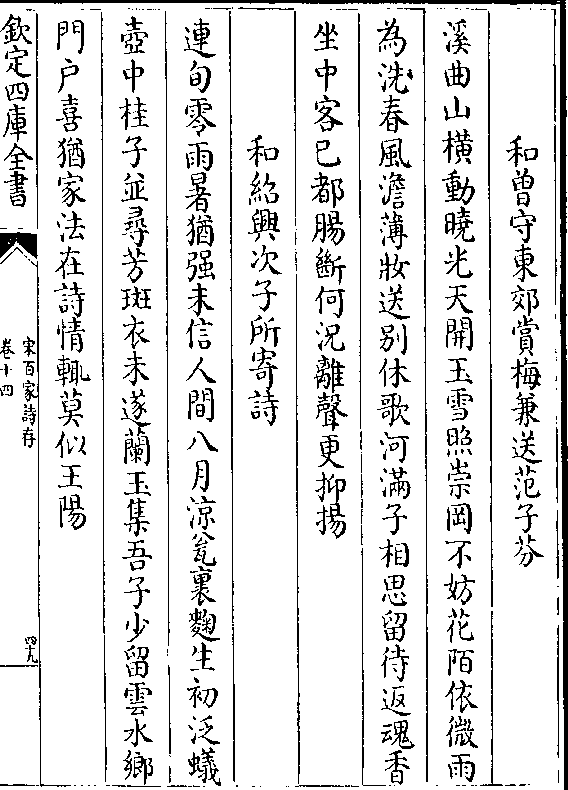 和曾守東郊賞梅兼送范子芬
溪曲山橫動曉光天開玉雪照崇岡不妨花陌依微雨
為洗春風澹薄妝送別休歌河滿子相思留待返魂香
坐中客已都腸斷何況離聲更抑揚
和紹興次子所寄詩
連旬零雨暑猶强未信人間八月涼瓮裏麴生初泛蟻
壺中桂子並尋芳斑衣未遂蘭玉集吾子少留雲水鄉
門户喜猶家法在詩情輒莫似王陽
欽定四庫全書
宋百家詩存
卷十四
四九